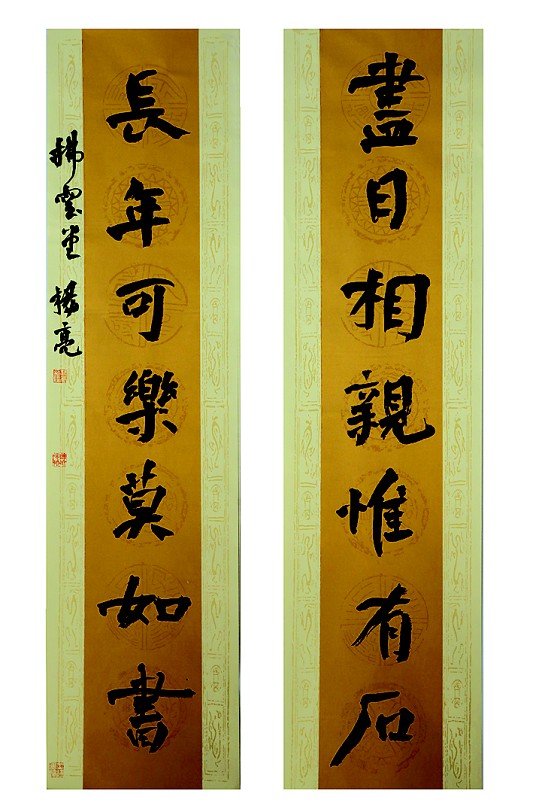 盡日相親惟有石
長年可樂莫如書
拂雲堂 楊亮